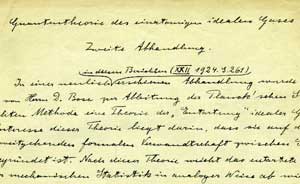 Quantentheorie des einatomigen idealen Gases
Zweite Abhandlung.
in diesen Berichten (XXII 1924. S. 261)
In einer neulich erschienenen Abhandlung wurde
von Herrn D. Bose zur Ableitung der Planck'schen S
hten Methode eine Theorie der „Entartung" idealer G
nteresse dieser Theorie liegt darin, dass sie auf
weitgehenden formalen Verwandtschaft zwischen S
gründet ist. Nach dieser Theorie wicht das entartete
mechanischen Statistik in analoger Weise ab wie